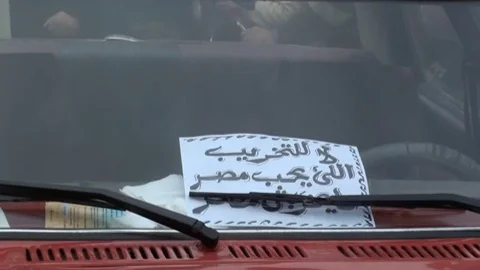 لا للتخريب
اللى يحب مصر
مصر